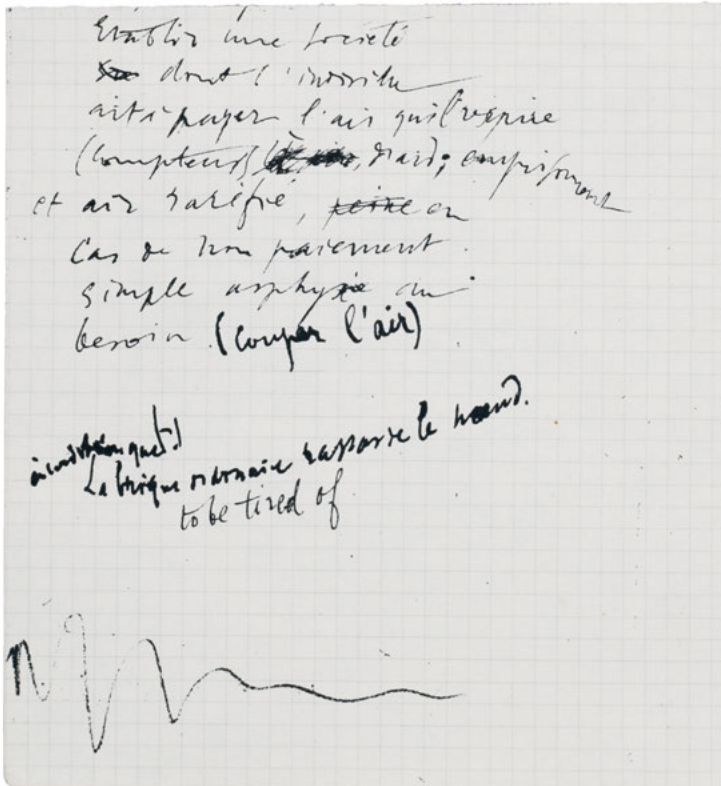 Etablir une société
dont l'individu
ait à payer l'air qu'il respire
(compteurs) ; emprisonnement
et air raréfié, peine en
Cas de non paiement
simple asphyxie au
besoin (couper l'air)
à condition que (?)
La brique ordinaire rassasie le nœud.
to be tired of